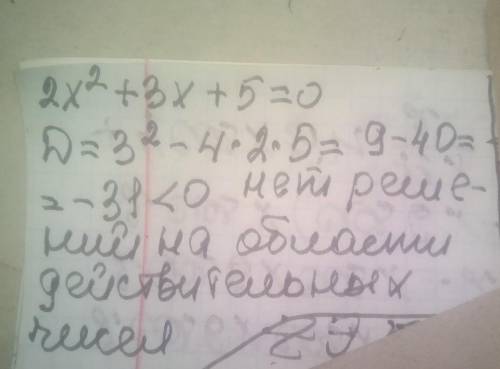 2x² + 3x + 5 = 0
D = 3² - 4·2·5 = 9 - 40 =
= -31 < 0 нет реше-
ний на области
действительных
чисел